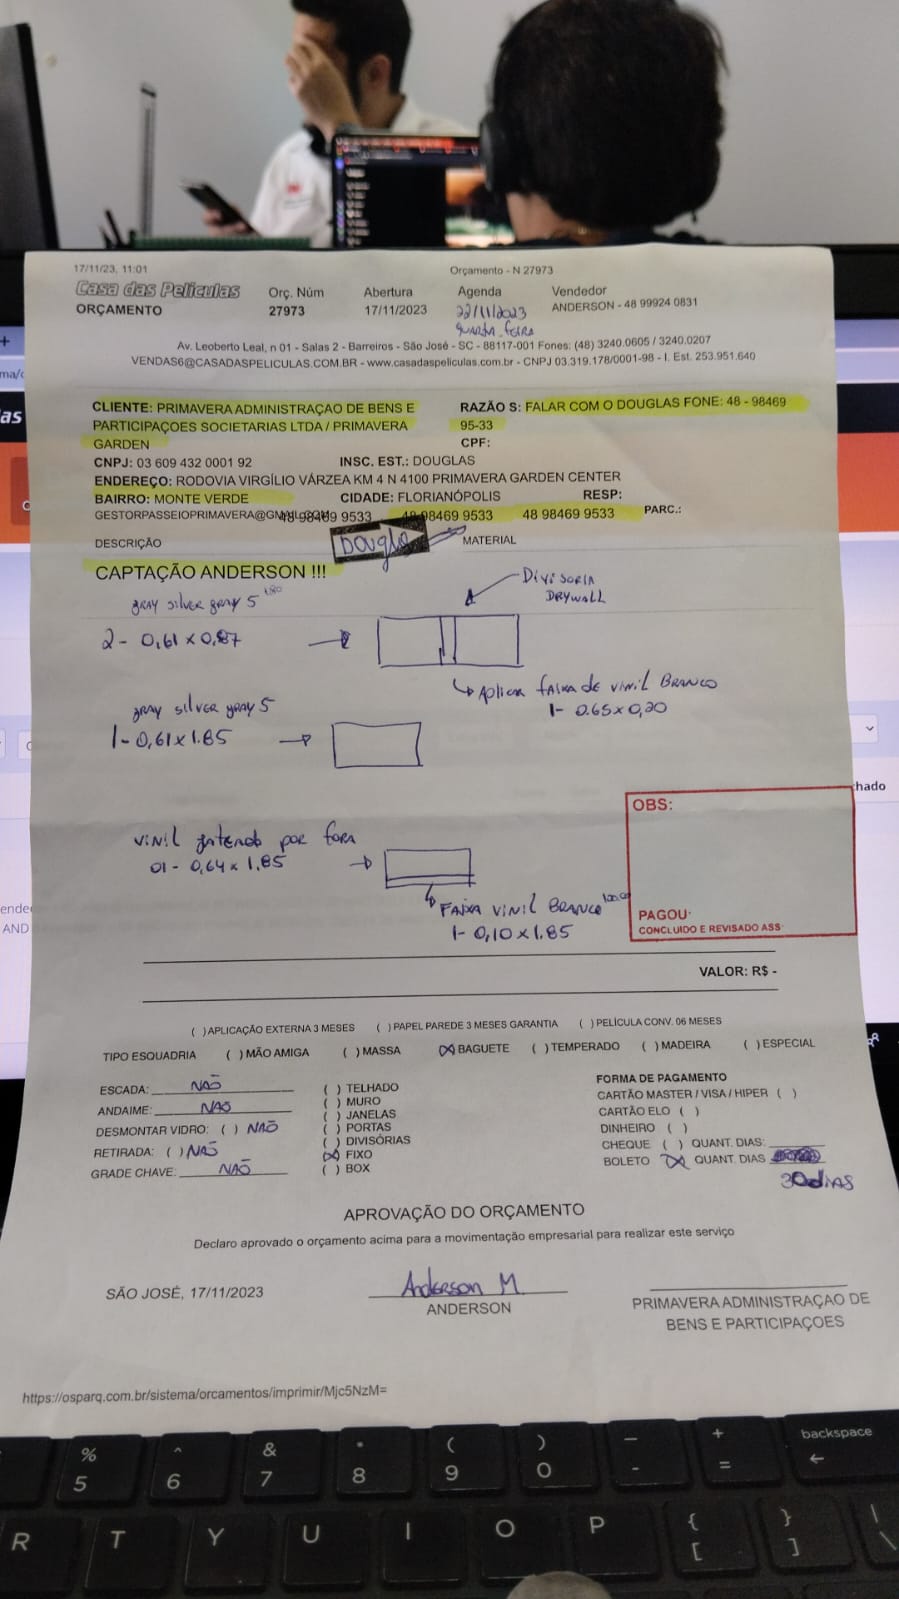 17/11/23, 11:01
Orçamento - N 27973
Casa das Películas
ORÇAMENTO
Orç. Núm
27973
Abertura
17/11/2023
Agenda
22/11/2023
quarta-feira
Vendedor
ANDERSON - 48 99924 0831
Av. Leoberto Leal, n 01 - Salas 2 - Barreiros - São José - SC - 88117-001 Fones: (48) 3240.0605 / 3240.0207
VENDAS6@CASADASPELICULAS.COM.BR - www.casadaspeliculas.com.br - CNPJ 03.319.178/0001-98 - I. Est. 253.951.640
CLIENTE: PRIMAVERA ADMINISTRAÇAO DE BENS E
PARTICIPAÇOES SOCIETARIAS LTDA / PRIMAVERA
GARDEN
RAZÃO S: FALAR COM O DOUGLAS FONE: 48 - 98469
95-33
CPF:
CNPJ: 03 609 432 0001 92 INSC. EST.: DOUGLAS
ENDEREÇO: RODOVIA VIRGÍLIO VÁRZEA KM 4 N 4100 PRIMAVERA GARDEN CENTER
BAIRRO: MONTE VERDE CIDADE: FLORIANÓPOLIS RESP:
GESTORPASSEIOPRIMAVERA@GMAIL.COM 48 98469 9533 48 98469 9533 48 98469 9533 PARC.:
DESCRIÇÃO
Douglas
MATERIAL
CAPTAÇÃO ANDERSON !!!
gray silver gray 5
2 - 0,61 x 0,87
Divisoria
DRYWALL
Aplicar faixa de vinil BRANCO
1- 0.65 x 0,20
gray silver gray 5
1 - 0,61 x 1.85
vinil por fora
01 - 0,64 x 1,85
FAIXA VINIL BRANCO
1- 0,10 x 1.85
OBS:
PAGOU:
CONCLUÍDO E REVISADO ASS:
VALOR: R$ -
( )APLICAÇÃO EXTERNA 3 MESES ( )PAPEL PAREDE 3 MESES GARANTIA ( )PELÍCULA CONV. 06 MESES
TIPO ESQUADRIA ( )MÃO AMIGA ( )MASSA (X)BAGUETE ( )TEMPERADO ( )MADEIRA ( )ESPECIAL
ESCADA: NÃO
ANDAIME: NÃO
DESMONTAR VIDRO: ( ) NÃO
RETIRADA: ( ) NÃO
GRADE CHAVE: NÃO
( ) TELHADO
( ) MURO
( ) JANELAS
( ) PORTAS
( ) DIVISÓRIAS
(X) FIXO
( ) BOX
FORMA DE PAGAMENTO
CARTÃO MASTER / VISA / HIPER ( )
CARTÃO ELO ( )
DINHEIRO ( )
CHEQUE ( ) QUANT. DIAS:
BOLETO (X) QUANT. DIAS
30 dias
APROVAÇÃO DO ORÇAMENTO
Declaro aprovado o orçamento acima para a movimentação empresarial para realizar este serviço
SÃO JOSÉ, 17/11/2023
Anderson M.
ANDERSON
PRIMAVERA ADMINISTRAÇAO DE
BENS E PARTICIPAÇOES
https://osparq.com.br/sistema/orcamentos/imprimir/Mjc5NzM=
% ^ & * ( ) _ + backspace
5 6 7 8 9 0 - = ←
R T Y U I O P { [ } ] | \